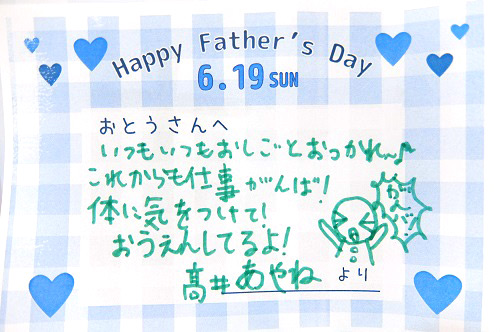 Happy Father's Day
6.19 SUN
おとうさんへ
いつもいつもおしごとおつかれ〜♪
これからも仕事がんば!
体に気をつけて!
おうえんしてるよ!
がんバ!
高井あやね より